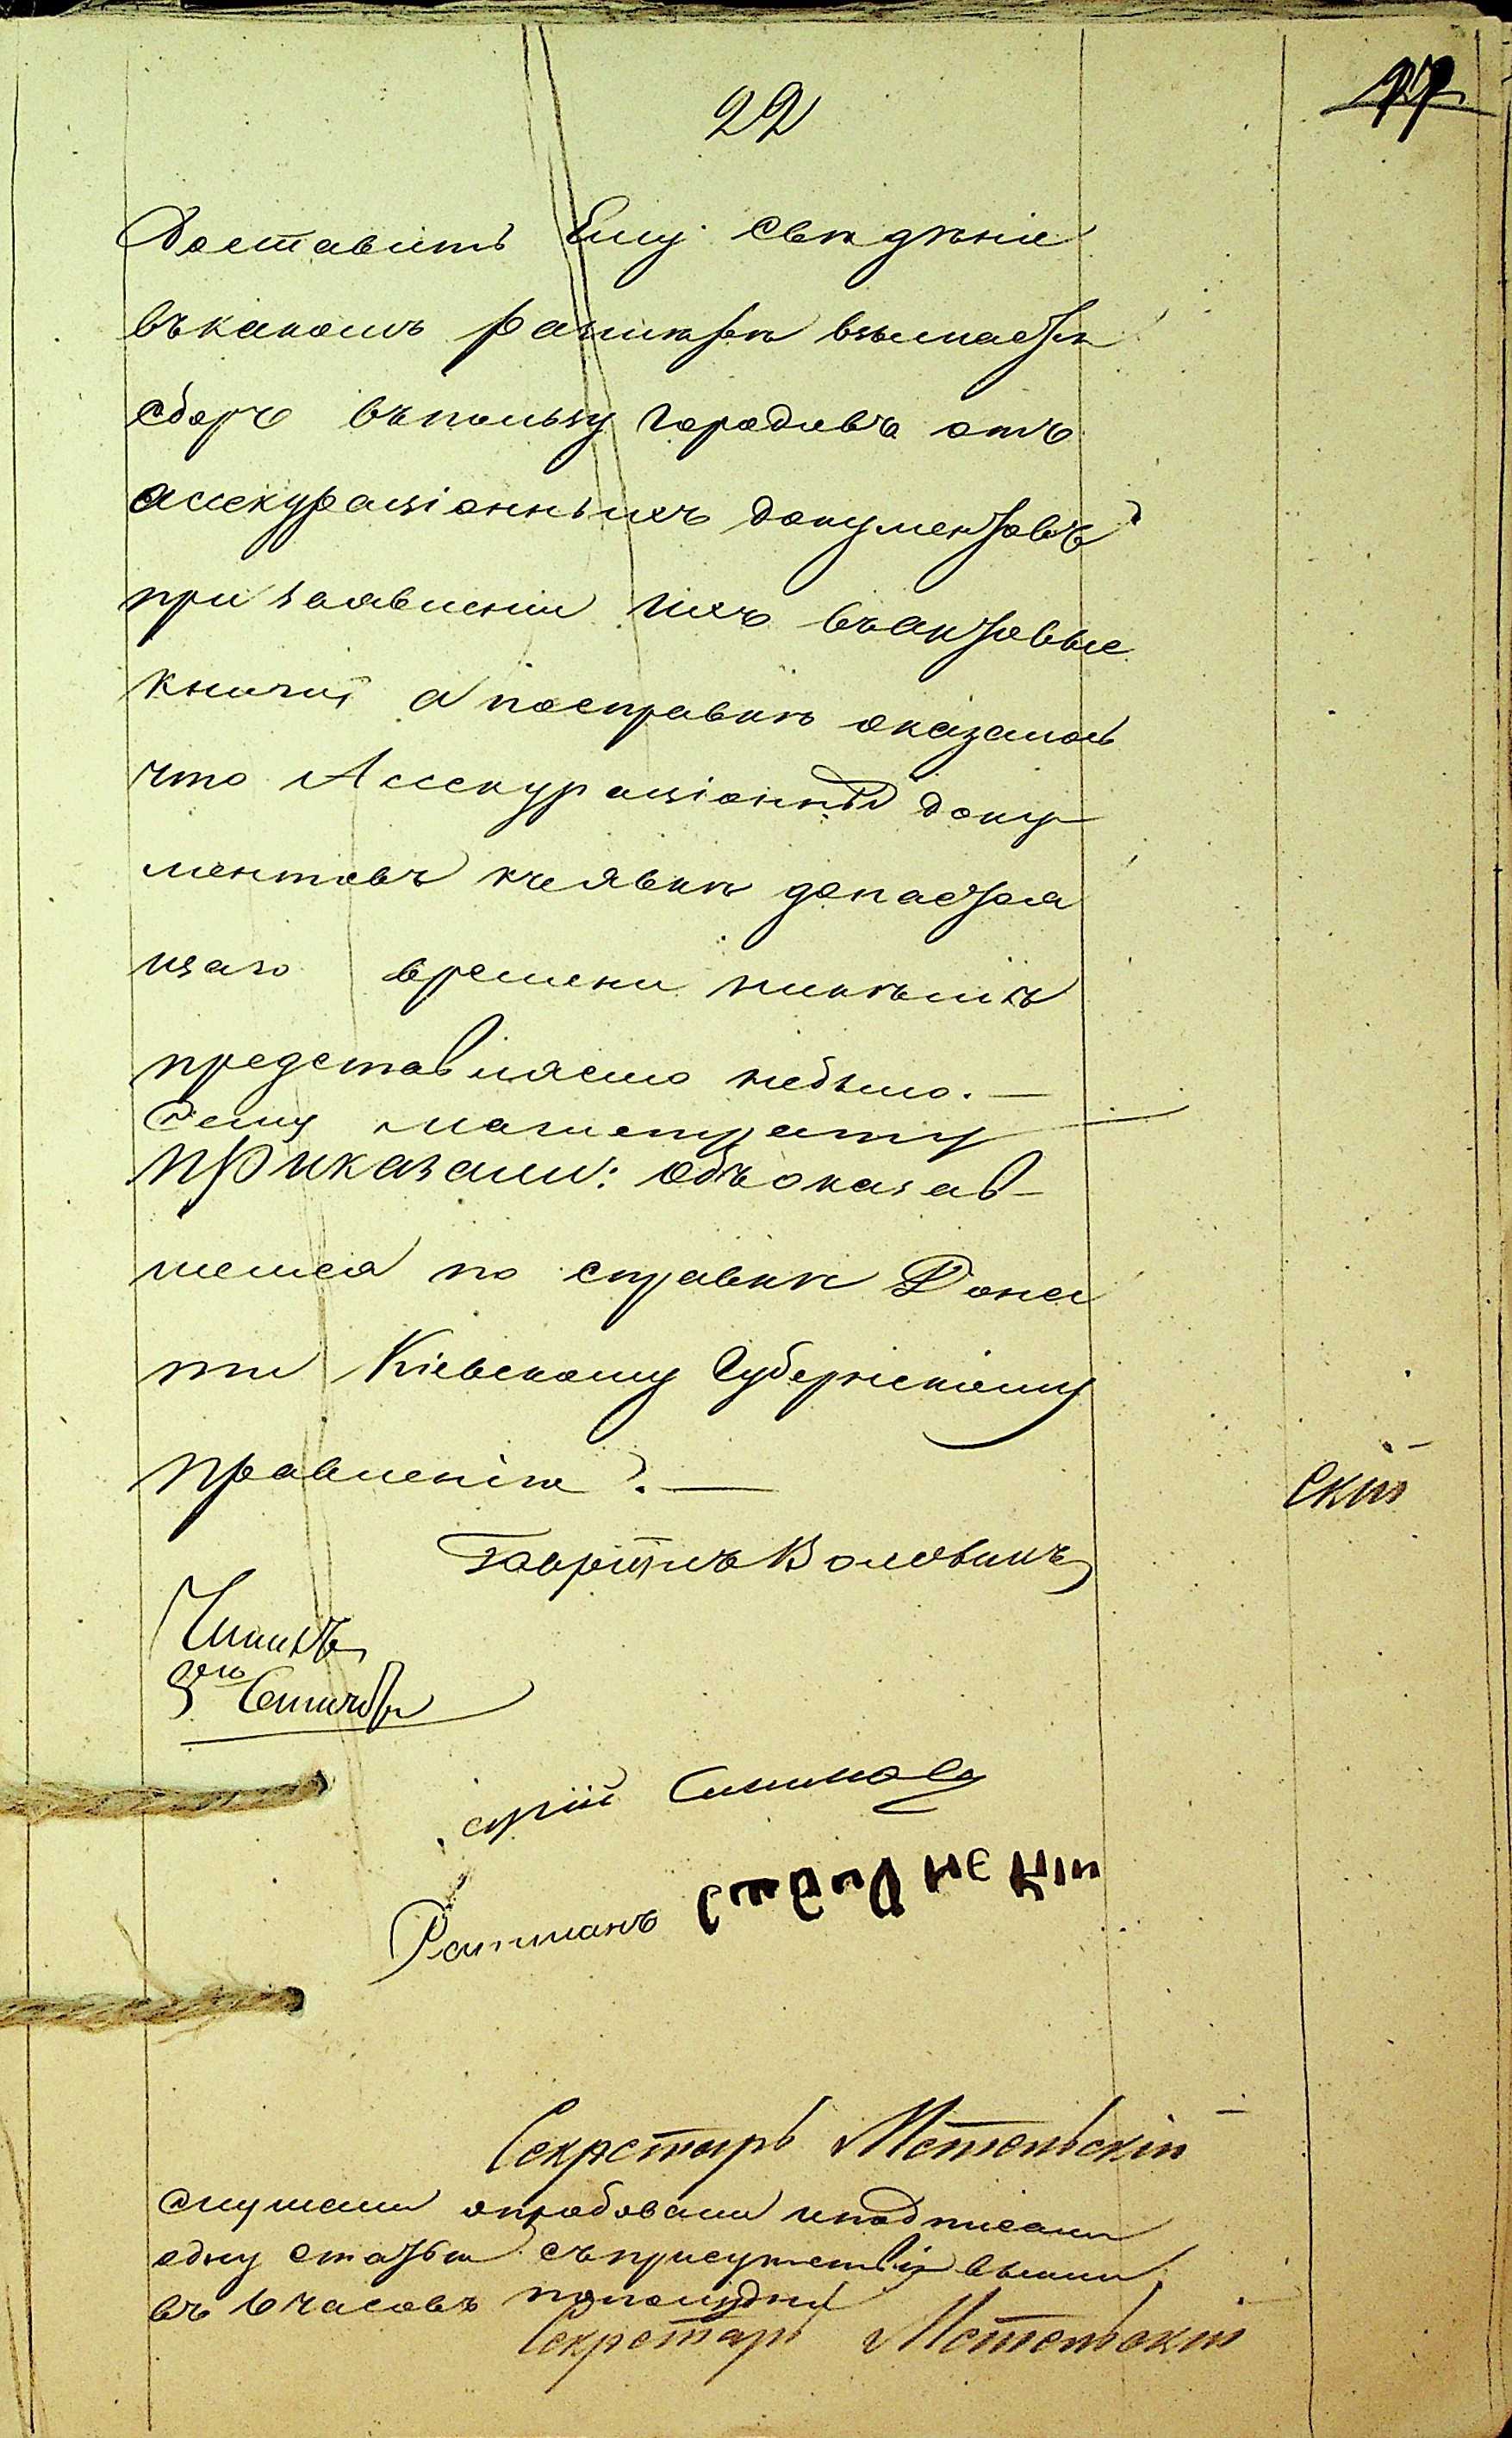 22
Доставить Ему сведѣніе
въкакомъ размѣрѣ взымается
сборъ въпользу городовъ отъ
ассекураціонныхъ документовъ
при заявленіи ихъ въактовые
книги, а посправкѣ оказалось
что Ассекураціонный доку
ментовъ къявкѣ донастоя
щаго времени никѣмъ
представляемо небыло. —
Сему магистрату
приказали: Объоказав-
шемся по справкѣ Доне
сти Кіевскому Губернскому
правленію. —
Гавріилъ Воловикъ
Сентября
Ратманъ
скій
Секретарь Метельскій
слушали апробовали иподписали
одну статью съприсутствія вышли
въ 6 часовъ пополудни
Секретарь Метельскій